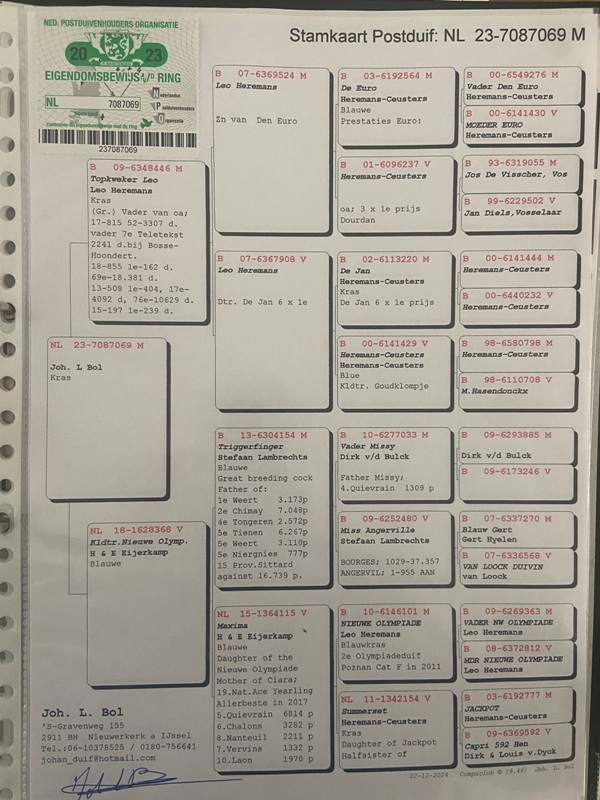 NED. POSTDUIVENHOUDERS ORGANISATIE
20 23
EIGENDOMSBEWIJS a/d RING
NL 7087069
Nederlandse
Postduivenhouders
Organisatie
237087069
Stamkaart Postduif: NL 23-7087069 M
B 09-6348446 M
Topkweker Leo
Leo Heremans
Kras
(Gr.) Vader van oa;
17-815 52-3307 d.
vader 7e Teletekst
2241 d.bij Bosse-
Hoondert.
18-855 1e-162 d.
69e-18.381 d.
13-508 1e-404, 17e-
4092 d, 76e-10629 d.
15-197 1e-239 d.
NL 23-7087069 M
Joh. L Bol
Kras
NL 18-1628368 V
Kldtr.Nieuwe Olymp.
H & E Eijerkamp
Blauwe
B 07-6369524 M
Leo Heremans
Zn van Den Euro
B 07-6367908 V
Leo Heremans
Dtr. De Jan 6 x 1e
B 13-6304154 M
Triggerfinger
Stefaan Lambrechts
Blauwe
Great breeding cock
Father of:
1e Weert 3.173p
2e Chimay 7.048p
4e Tongeren 2.572p
5e Tienen 6.267p
5e Weert 3.110p
5e Niergnies 777p
15 Prov.Sittard
against 16.739 p.
NL 15-1364115 V
Maxima
H & E Eijerkamp
Blauwe
Daughter of the
Nieuwe Olympiade
Mother of Ciara;
19.Nat.Ace Yearling
Allerbeste in 2017
5.Quievrain 6814 p
6.Chalons 3282 p
8.Nanteuil 2211 p
7.Vervins 1332 p
10.Laon 1970 p
B 03-6192564 M
De Euro
Heremans-Ceusters
Blauwe
Prestaties Euro:
B 01-6096237 V
Heremans-Ceusters
oa; 3 x 1e prijs
Dourdan
B 02-6113220 M
De Jan
Heremans-Ceusters
Kras
De Jan 6 x 1e prijs
B 00-6141429 V
Heremans-Ceusters
Heremans-Ceusters
Blue
Kldtr. Goudklompje
B 10-6277033 M
Vader Missy
Dirk v/d Bulck
Father Missy;
4.Quievrain 1309 p
B 09-6252480 V
Miss Angerville
Stefaan Lambrechts
BOURGES; 1029-37.357
ANGERVIL; 1-955 AAN
B 10-6146101 M
NIEUWE OLYMPIADE
Leo Heremans
Blauwkras
2e Olympiadeduif
Poznan Cat F in 2011
NL 11-1342154 V
Summerset
Heremans-Ceusters
Kras
Daughter of Jackpot
Halfsister of
B 00-6549276 M
Vader Den Euro
Heremans-Ceusters
B 00-6141430 V
MOEDER EURO
Heremans-Ceusters
B 93-6319055 M
Jos De Visscher, Vos
B 99-6229502 V
Jan Diels,Vosselaar
B 00-6141444 M
Heremans-Ceusters
B 00-6440232 V
Heremans-Ceusters
B 98-6580798 M
Heremans-Ceusters
B 98-6110708 V
M.Hasendonckx
B 09-6293885 M
Dirk v/d Bulck
B 09-6173246 V
B 07-6337270 M
Blauw Gert
Gert Hyelen
B 07-6336568 V
VAN LOOCK DUIVIN
van Loock
B 09-6269363 M
VADER NW OLYMPIADE
Leo Heremans
B 08-6372812 V
MDR NIEUWE OLYMPIADE
Leo Heremans
B 03-6192777 M
JACKPOT
Heremans-Ceusters
B 09-6369592 V
Capri 592 Hen
Dirk & Louis v.Dyck
Joh. L. Bol
'S-Gravenweg 155
2911 BM Nieuwerkerk a IJssel
Tel.:06-10378525 / 0180-756641
johan_duif@hotmail.com
22-12-2024 Compuclub © [9.46] Joh. L. Bol